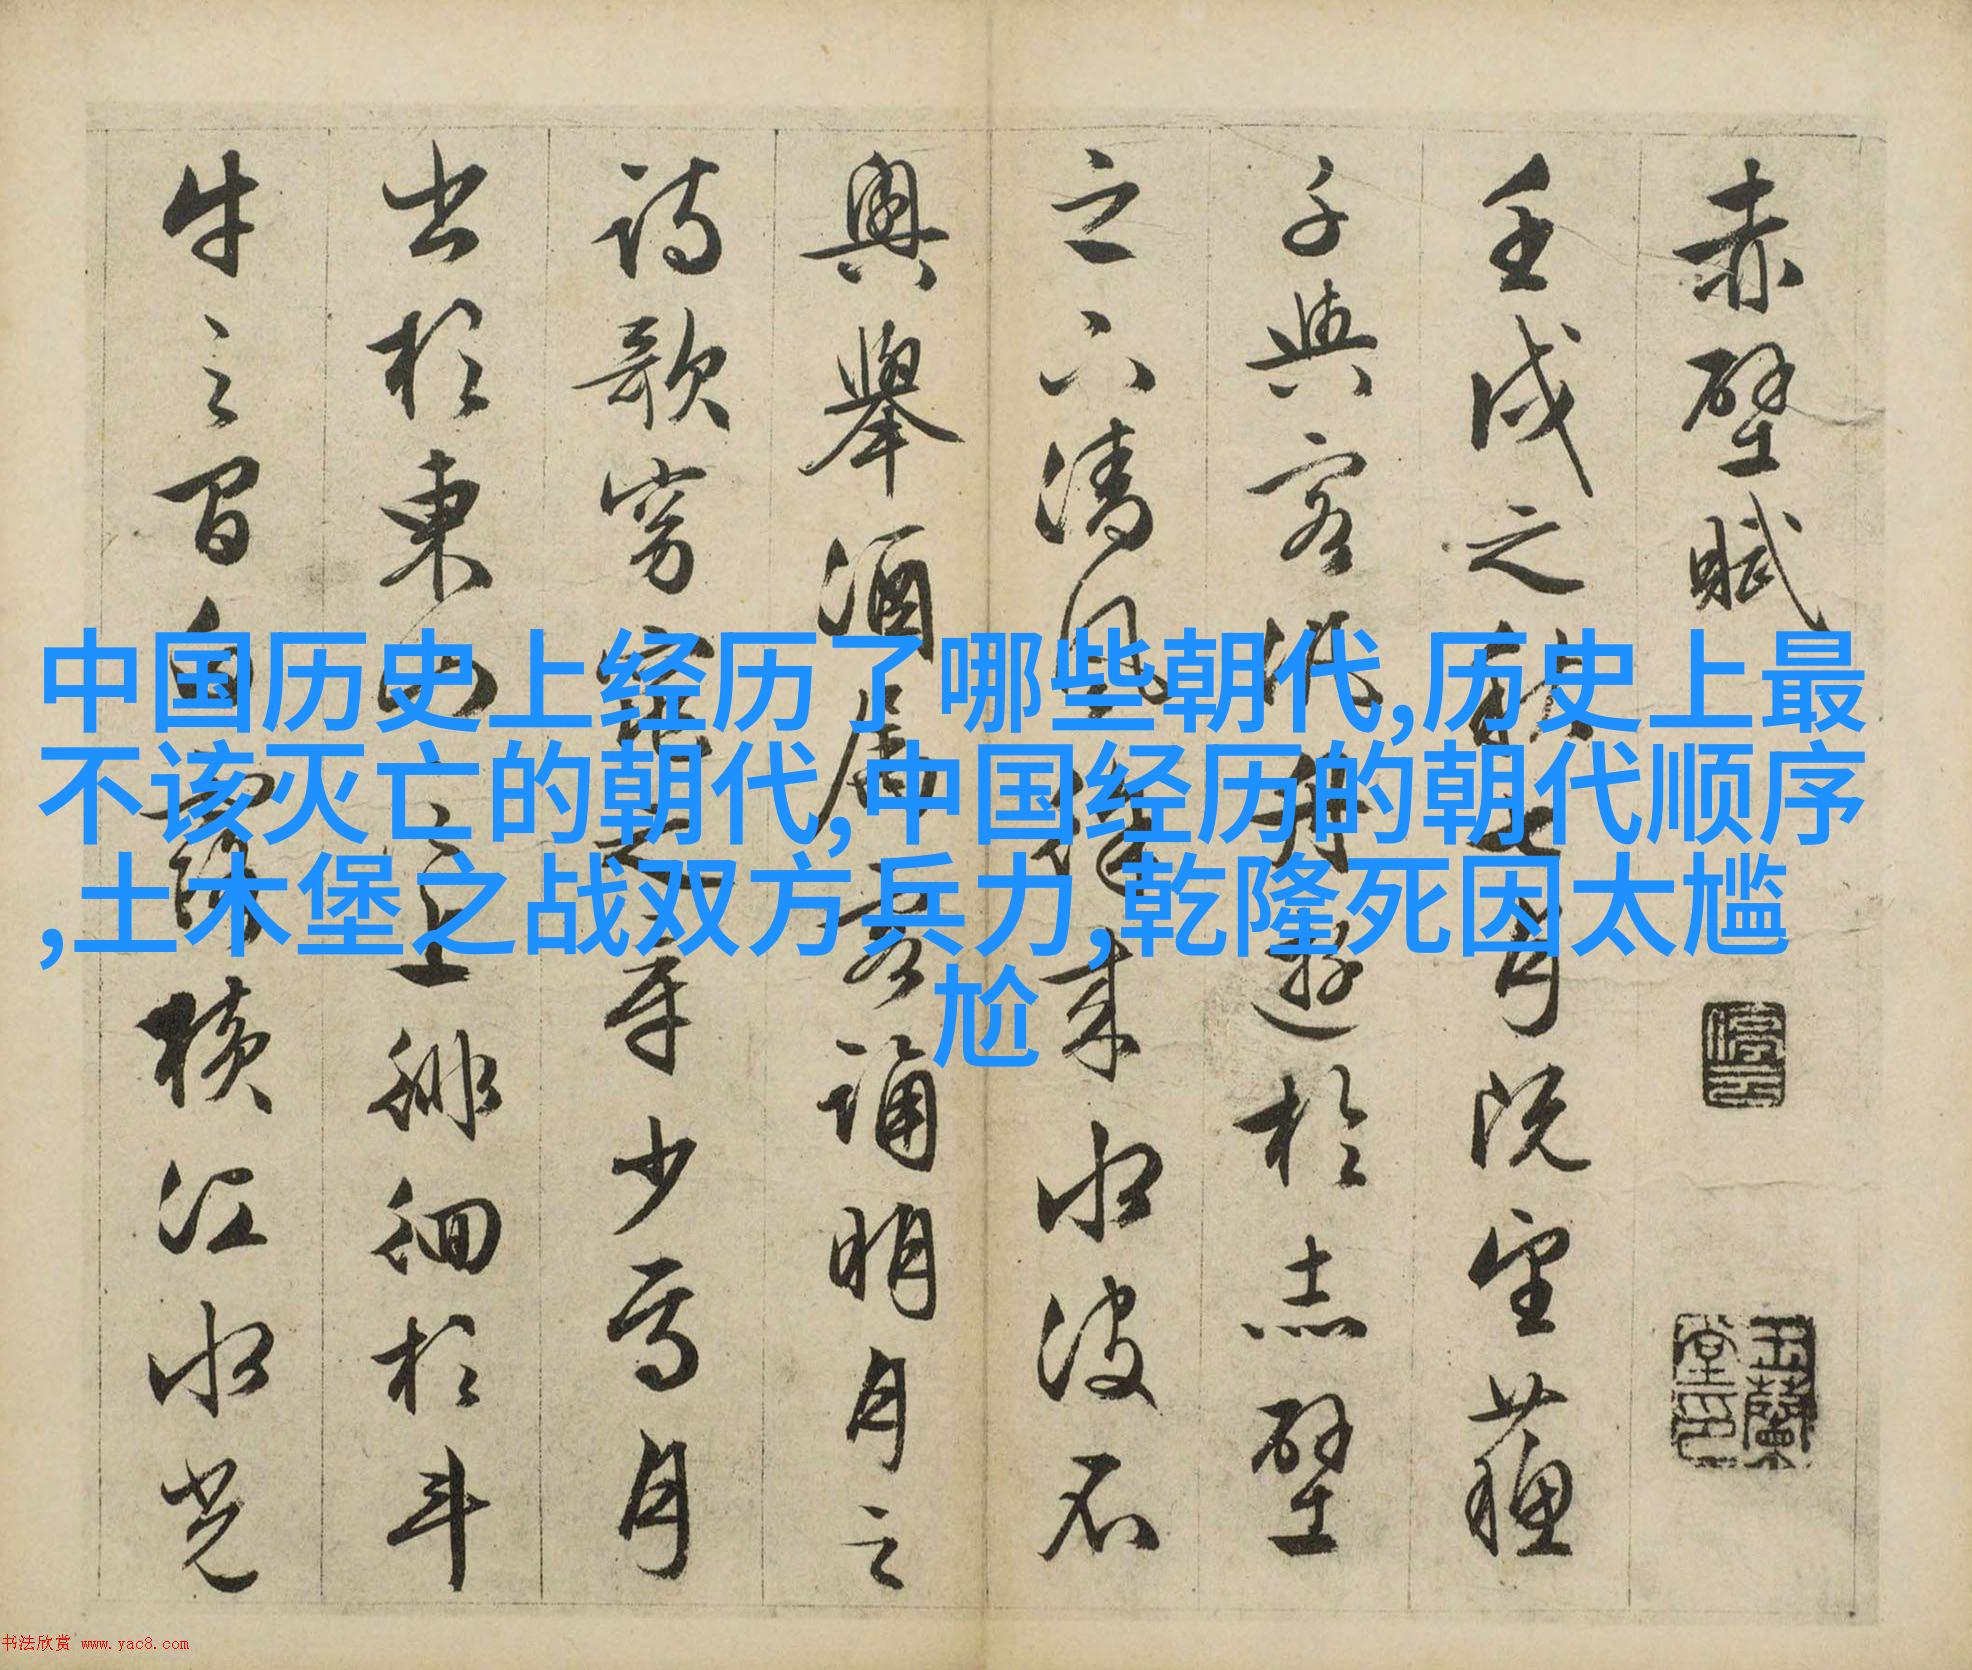 中国历史上经历了哪些朝代,历史上最
不该灭亡的朝代,中国经历的朝代顺序
,土木堡之战双方兵力,乾隆死因太尴
尬
赤壁賦
壬戌之秋七月既望蘓
子與客泛舟遊於赤壁
之下清風徐来水波不
興舉酒屬客誦明月之
詩歌窈窕之章少焉月
出於東山之上徘徊於斗
牛之間白露横江水光
停雲
玉蘭堂印
书法欣赏 www.yac8.com